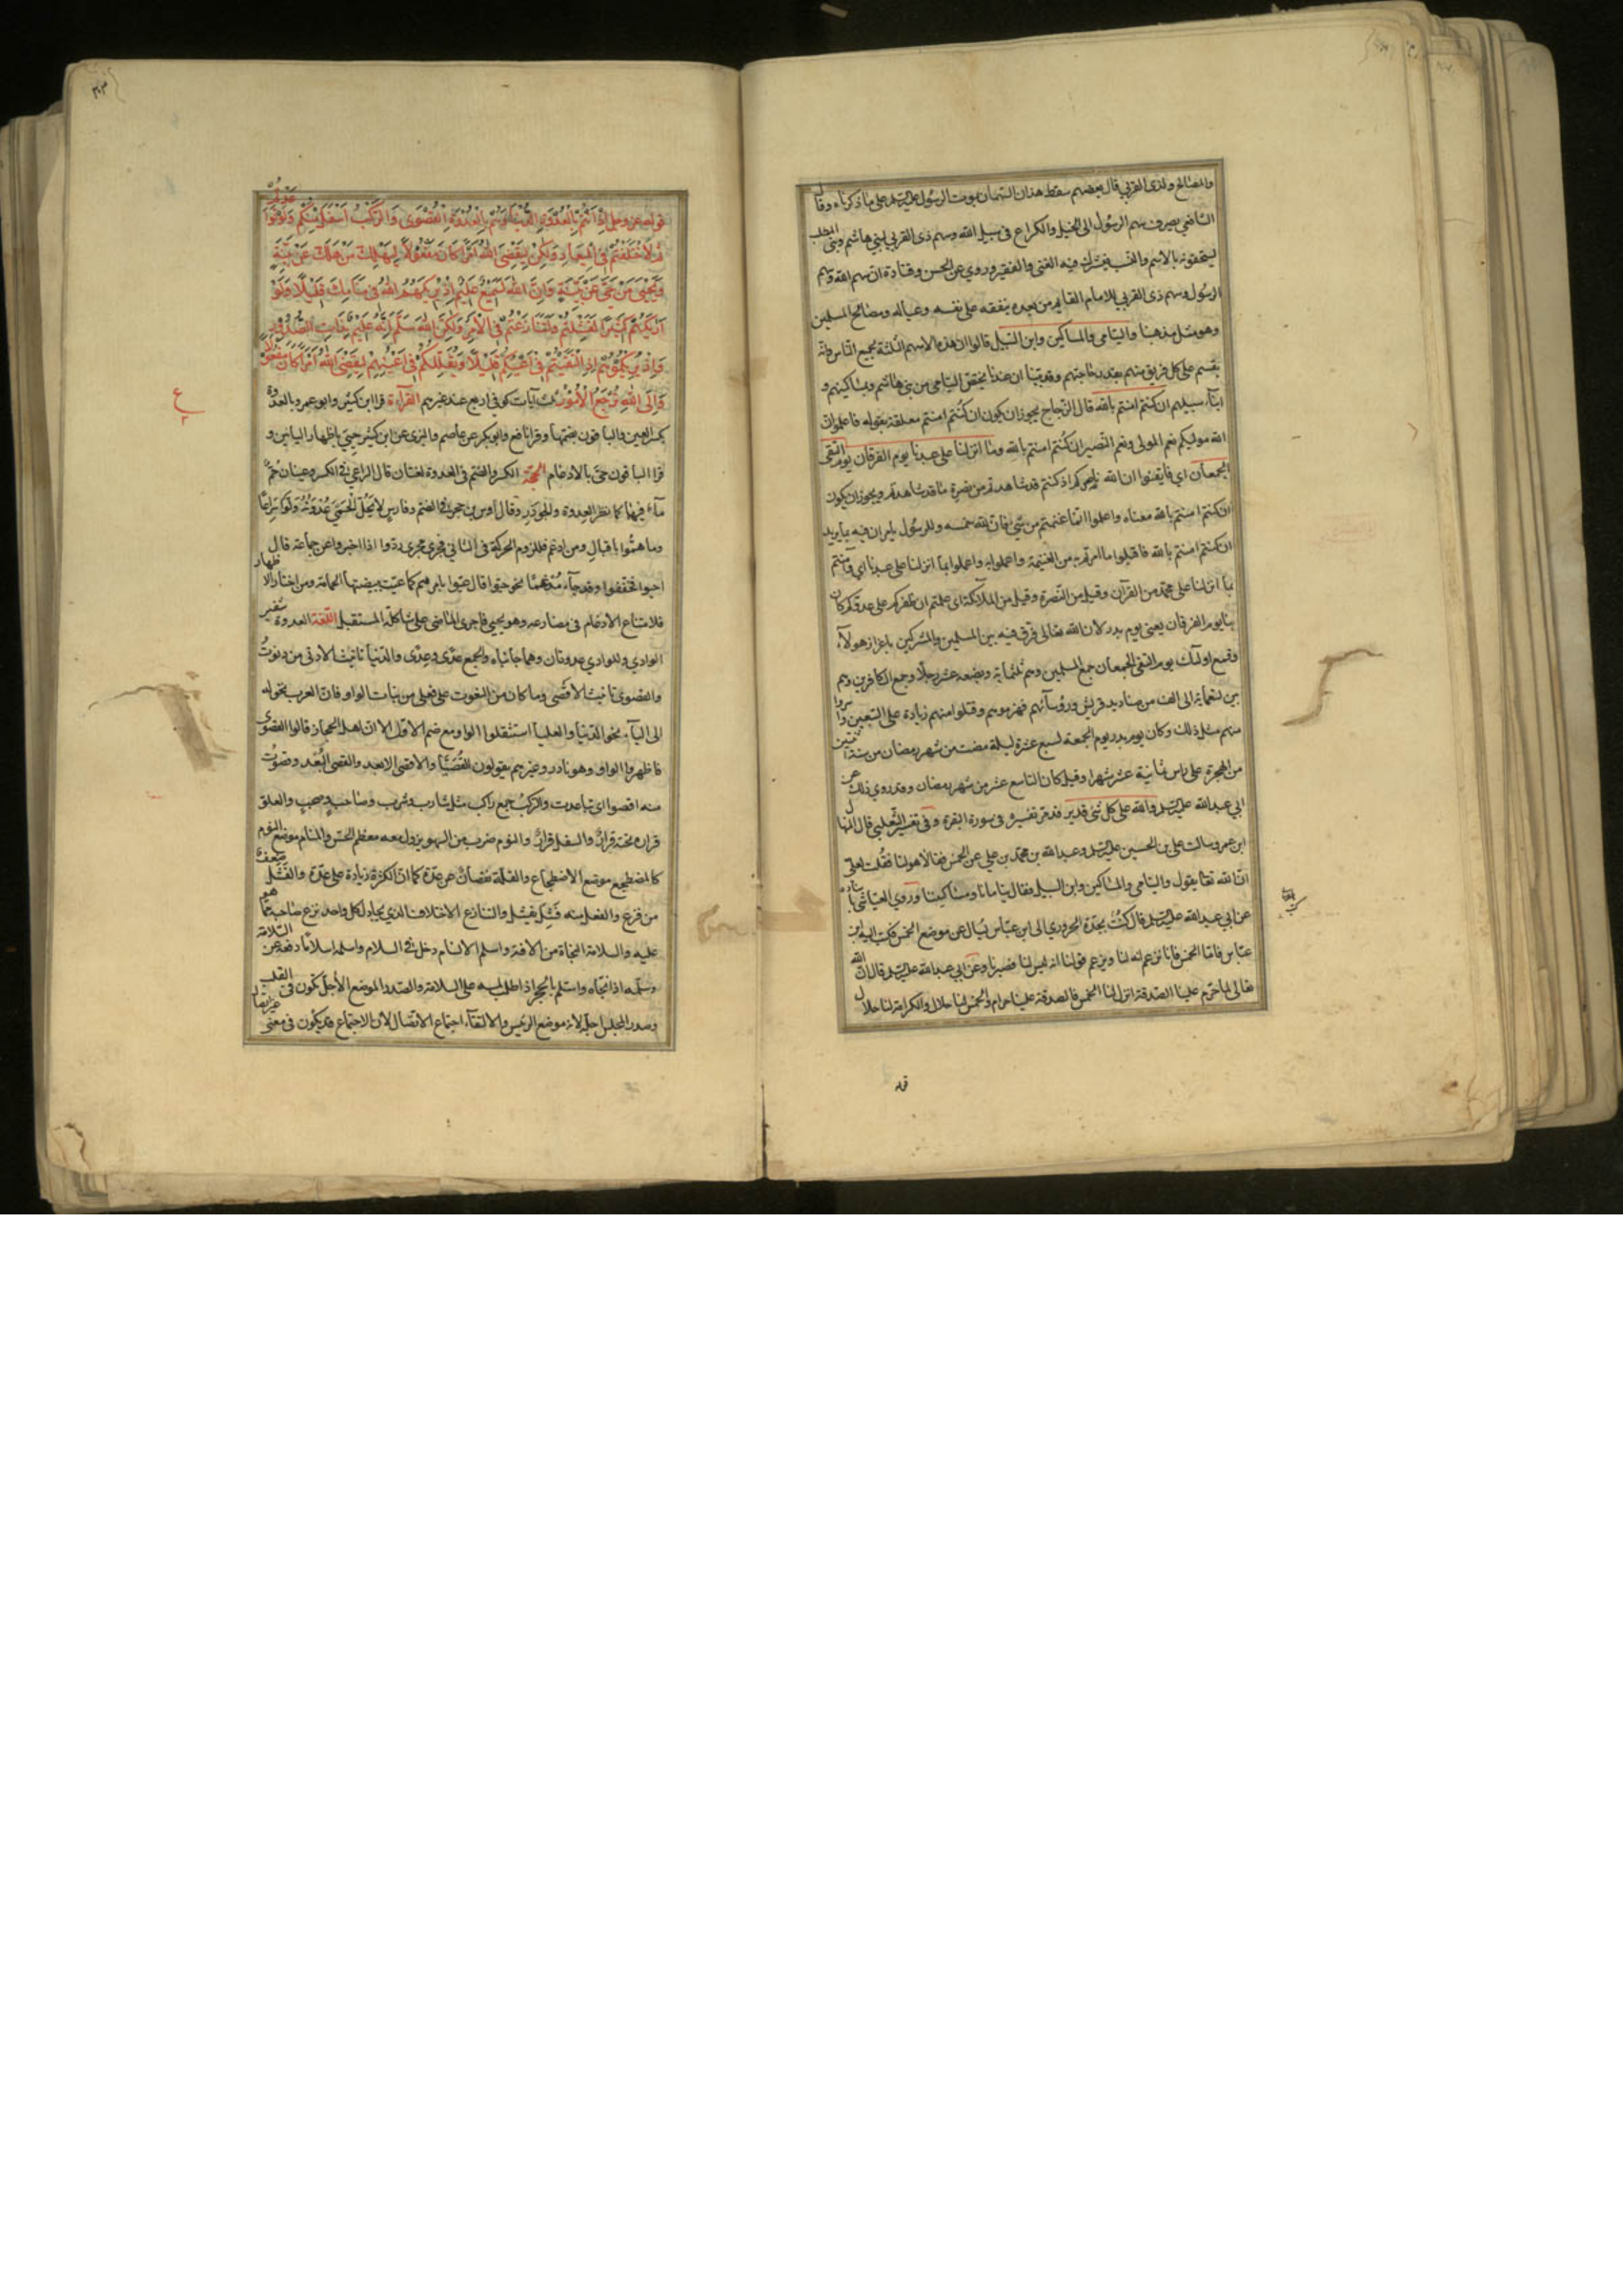 والمصالح ولذى القربى قال بعضهم سقط هذان السهمان بموت الرسول عليه السلم على ما ذكرناه وقال
الشافعي يصرف سهم الرسول الى الخيل والكراع فى سبيل الله وسهم ذى القربى لبنى هاشم وبنى المطلب
يستحقونه بالاسم والنسب فيشترك فيه الغنى والفقير وروي عن الحسن وقتادة ان سهم الله وسهم
الرسول وسهم ذى القربى للامام القايم من بعده ينفقه على نفسه وعياله ومصالح المسلمين
وهو مثل مذهبنا واليتامى والمساكين وابن السبيل قالوا ان هذه الاسهم الثلثة لجميع الناس وانه
يقسم على كل فريق منهم بقدر حاجتهم وقد بينا ان عندنا يختص اليتامى من بنى هاشم ومساكينهم و
ابناء سبيلهم ان كنتم امنتم بالله قال الزجاج يجوز ان يكون ان كنتم امنتم معلقة بقوله فاعلموا ان
الله موليكم نعم المولى ونعم النصير ان كنتم امنتم بالله وما انزلنا على عبدنا يوم الفرقان يوم التقى
الجمعان اي فايقنوا ان الله ناصركم اذ كنتم قد شاهدتم من نصره ما قد شاهدتم ويجوز ان يكون
ان كنتم امنتم بالله معناه واعلموا انما غنمتم من شي فان لله خمسه وللرسول يامران فيه بما يريد
ان كنتم امنتم بالله فاقبلوا ما امرتم به من الغنيمة واعملوا به واعملوا بما انزلنا على عبدنا اي وآمنتم
بما انزلنا على محمد من القرآن وقيل من النصرة وقيل من الملآئكة اى علمتم ان ظفركم على عدوكم كان
بنا يوم الفرقان يعنى يوم بدر لان الله تعالى فرق فيه بين المسلمين والمشركين باعزاز هولآء
وقمع اولئك يوم التقى الجمعان جمع المسلمين وهم ثلثماية وبضعة عشر رجلا وجمع الكافرين وهم
بين تسعماية الى الف من صناديد قريش ورؤسآئهم فهزموهم وقتلوا منهم زيادة على السبعين واسروا
منهم مثل ذلك وكان يوم بدر يوم الجمعة لسبع عشرة ليلة مضت من شهر رمضان من سنة اثنتين
من الهجرة على راس ثمانية عشر شهرا وقيل كان التاسع عشر من شهر رمضان وقد روي ذلك عن
ابي عبد الله عليه السلم والله على كل شئ قدير قد مر تفسيره فى سورة البقرة وفى تفسير الثعلبي قال المنهال
ابن عمرو سالت على بن الحسين عليه السلم وعبد الله بن محمد بن على عن الخمس فقالا هو لنا فقلت لعلى
ان الله تعالى يقول واليتامى والمساكين وابن السبيل فقال يتامانا ومساكيننا وروي العياشى باسناده
عن ابي عبد الله عليه السلم قال كتب نجدة الحروري الى ابن عباس يسال عن موضع الخمس فكتب اليه ابن
عباس فاما الخمس فانا نزعم انه لنا ويزعم قومنا انه ليس لنا فصبرنا وعن ابي عبد الله عليه السلم قال ان الله
تعالى لما حرم علينا الصدقة انزل لنا الخمس فالصدقة علينا حرام والخمس لنا حلال والكرامة لنا حلال
قوله
قوله عز وجل اذ انتم بالعدوة الدنيا وهم بالعدوة القصوى والركب اسفل منكم ولو تواعدتم
لاختلفتم فى الميعاد ولكن ليقضى الله امرا كان مفعولا ليهلك من هلك عن بينة
ويحيى من حي عن بينة وان الله لسميع عليم اذ يريكهم الله فى منامك قليلا ولو
اريكهم كثيرا لفشلتم ولتنازعتم فى الامر ولكن الله سلم انه عليم بذات الصدور
واذ يريكموهم اذ التقيتم فى اعينكم قليلا ويقللكم فى اعينهم ليقضى الله امرا كان مفعولا
والى الله ترجع الامور ثلث آيات كوفى اربع عند غيرهم القرآءة قرا ابن كثير وابو عمرو بالعدوة
بكسر العين والباقون بضمها وقرا نافع وابو بكر عن عاصم والبزى عن ابن كثير حيي باظهار اليائين و
قرا الباقون حي بالادغام الحجة الكسر والضم فى العدوة لغتان قال الراعي فى الكسر وعينان حمر
مآء قيهما كما نظر العدوة والجوذر وقال اوس بن حجر فى الضم وفارس لا يحل الحي عدوته ولوا سراعا
وما هموا باقبال ومن ادغم فللزوم الحركة فى الثاني فجري مجرى ردوا اذا اخبروا عن جماعة قال
احيوا فخففوا وقد جآء مدغما نحو حيوا قال عيوا بامرهم كما عيت ببيضتها الحمامة ومن اختار الاظهار
فلامتناع الادغام فى مضارعه وهو يحيي فاجرى الماضى على شاكلة المستقبل اللغة العدوة شفير
الوادي وللوادي عدوتان وهما جانباه والجمع عدى وعدى والدنيا تانيث الادنى من دنوت
والقصوى تانيث الاقصى وما كان من النعوت على فعلى من بنات الواو فان العرب تحوله
الى اليآء نحو الدنيا والعليا استثقلوا الواو مع ضم الاول الا ان اهل الحجاز قالوا القصوى
فاظهروا الواو وهو نادر وغيرهم يقولون القصيا والاقصى الابعد والقصى البعد وقصوت
منه اقصوا اى تباعدت والركب جمع راكب مثل شارب وشرب وصاحب وصحب والعلو
قراره تحته قرار والسفل قرار والنوم ضرب من السهو يزول معه معظم الحس والمنام موضع النوم
كالمضطجع موضع الاضطجاع والقلة نقصان عن عدة كما ان الكثرة زيادة على عدة والفشل ضعف
من فزع والفعل منه فشل يفشل والتنازع الاختلاف الذي يحاول كل واحد نزع صاحبه عما هو
عليه والسلامة النجاة من الافة واسلم الانسان دخل فى السلام واسلمه اسلاما دفعه عن السلامة
وسلمه اذا نجاه واستلم بالحجر اذا طلب لمسه على السلامة والصدر الموضع الاجل تكون فى القلب
وصدر المجلس اجله لانه موضع الرئيس والالتقآء اجتماع الاتصال لان الاجتماع قد يكون فى معنى غير اتصال